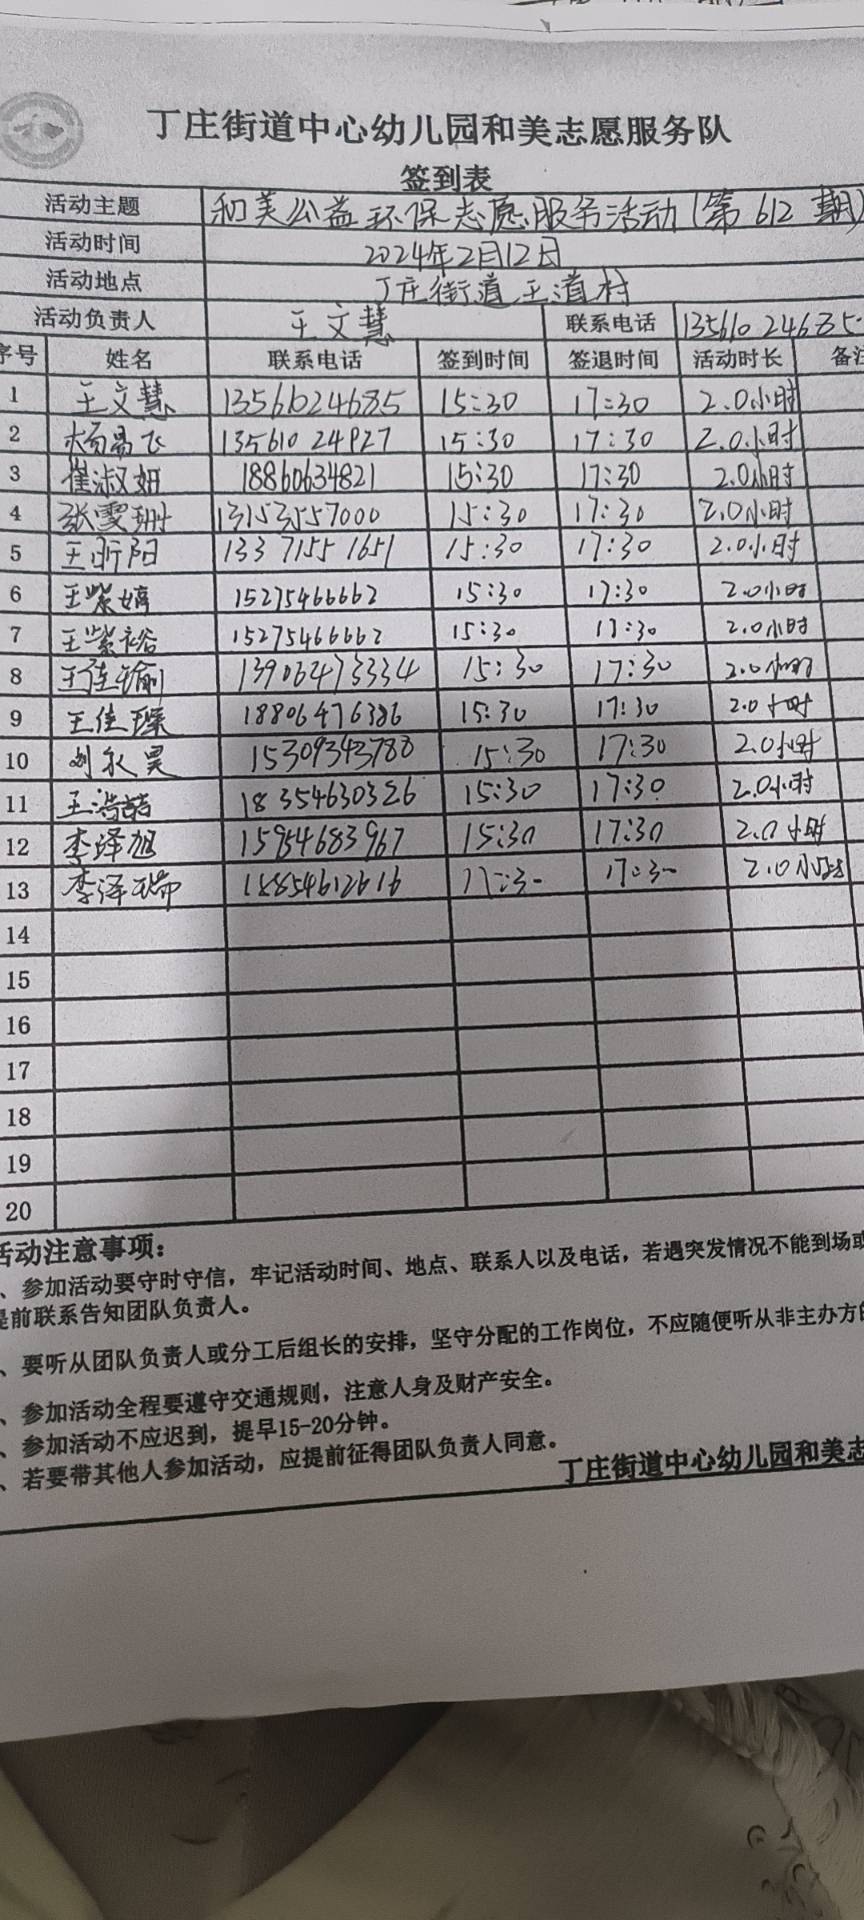 丁庄街道中心幼儿园和美志愿服务队
签到表
活动主题 和美公益环保志愿服务活动(第612期)
活动时间 2024年2月12日
活动地点 丁庄街道王道村
活动负责人 王文慧 联系电话 13561024685
序号 姓名 联系电话 签到时间 签退时间 活动时长 备注
1 王文慧 13561024685 15:30 17:30 2.0小时
2 13561024927 15:30 17:30 2.0小时
3 崔淑妍 18860634821 15:30 17:30 2.0小时
4 张雯珊 13153557000 15:30 17:30 2.0小时
5 王昕阳 13371551651 15:30 17:30 2.0小时
6 王紫婷 15275466662 15:30 17:30 2.0小时
7 王紫裕 15275466662 15:30 17:30 2.0小时
8 王佳瑜 13906473334 15:30 17:30 2.0小时
9 王佳琛 18806476386 15:30 17:30 2.0小时
10 刘永昊 15309343788 15:30 17:30 2.0小时
11 王浩喆 18354630326 15:30 17:30 2.0小时
12 李泽旭 15954683967 15:30 17:30 2.0小时
13 李泽瑞 18854612616 17:30 2.0小时
14
15
16
17
18
19
20
活动注意事项:
、参加活动要守时守信，牢记活动时间、地点、联系人以及电话，若遇突发情况不能到场或
提前联系告知团队负责人。
、要听从团队负责人或分工后组长的安排，坚守分配的工作岗位，不应随便听从非主办方的
、参加活动全程要遵守交通规则，注意人身及财产安全。
、参加活动不应迟到，提早15-20分钟。
、若要带其他人参加活动，应提前征得团队负责人同意。
丁庄街道中心幼儿园和美志